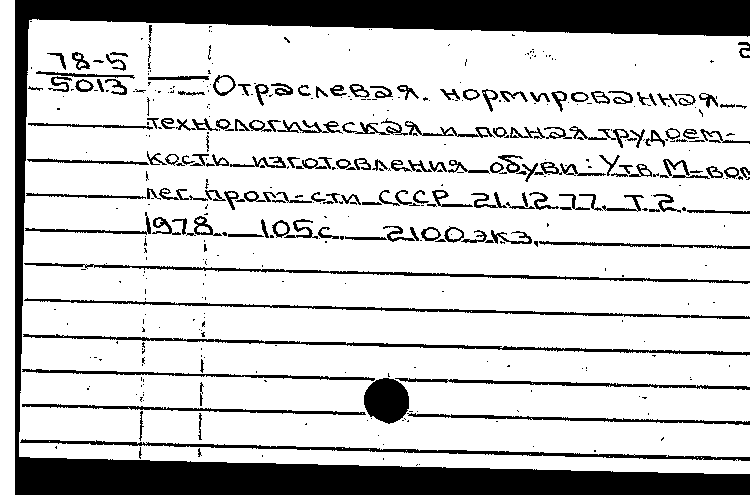 2
78-5
5013
— Отраслевая нормированная
технологическая и полная трудоем-
кость изготовления обуви: Утв. М-вом
лег. пром-сти СССР 21.12.77. Т.2.
1978. 105с. 2100экз.